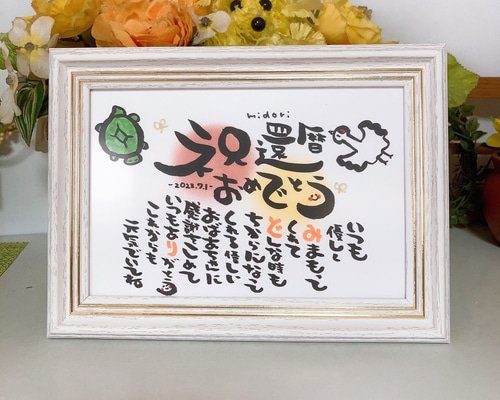 midori
祝還暦
おめでとう
-2023.7.1-
いつも
優しく
みまもって
くれて
どんな時も
ちからになって
くれる優しい
おばあちゃんに
感謝をこめて
いつもありがとう
これからも
元気でいてね